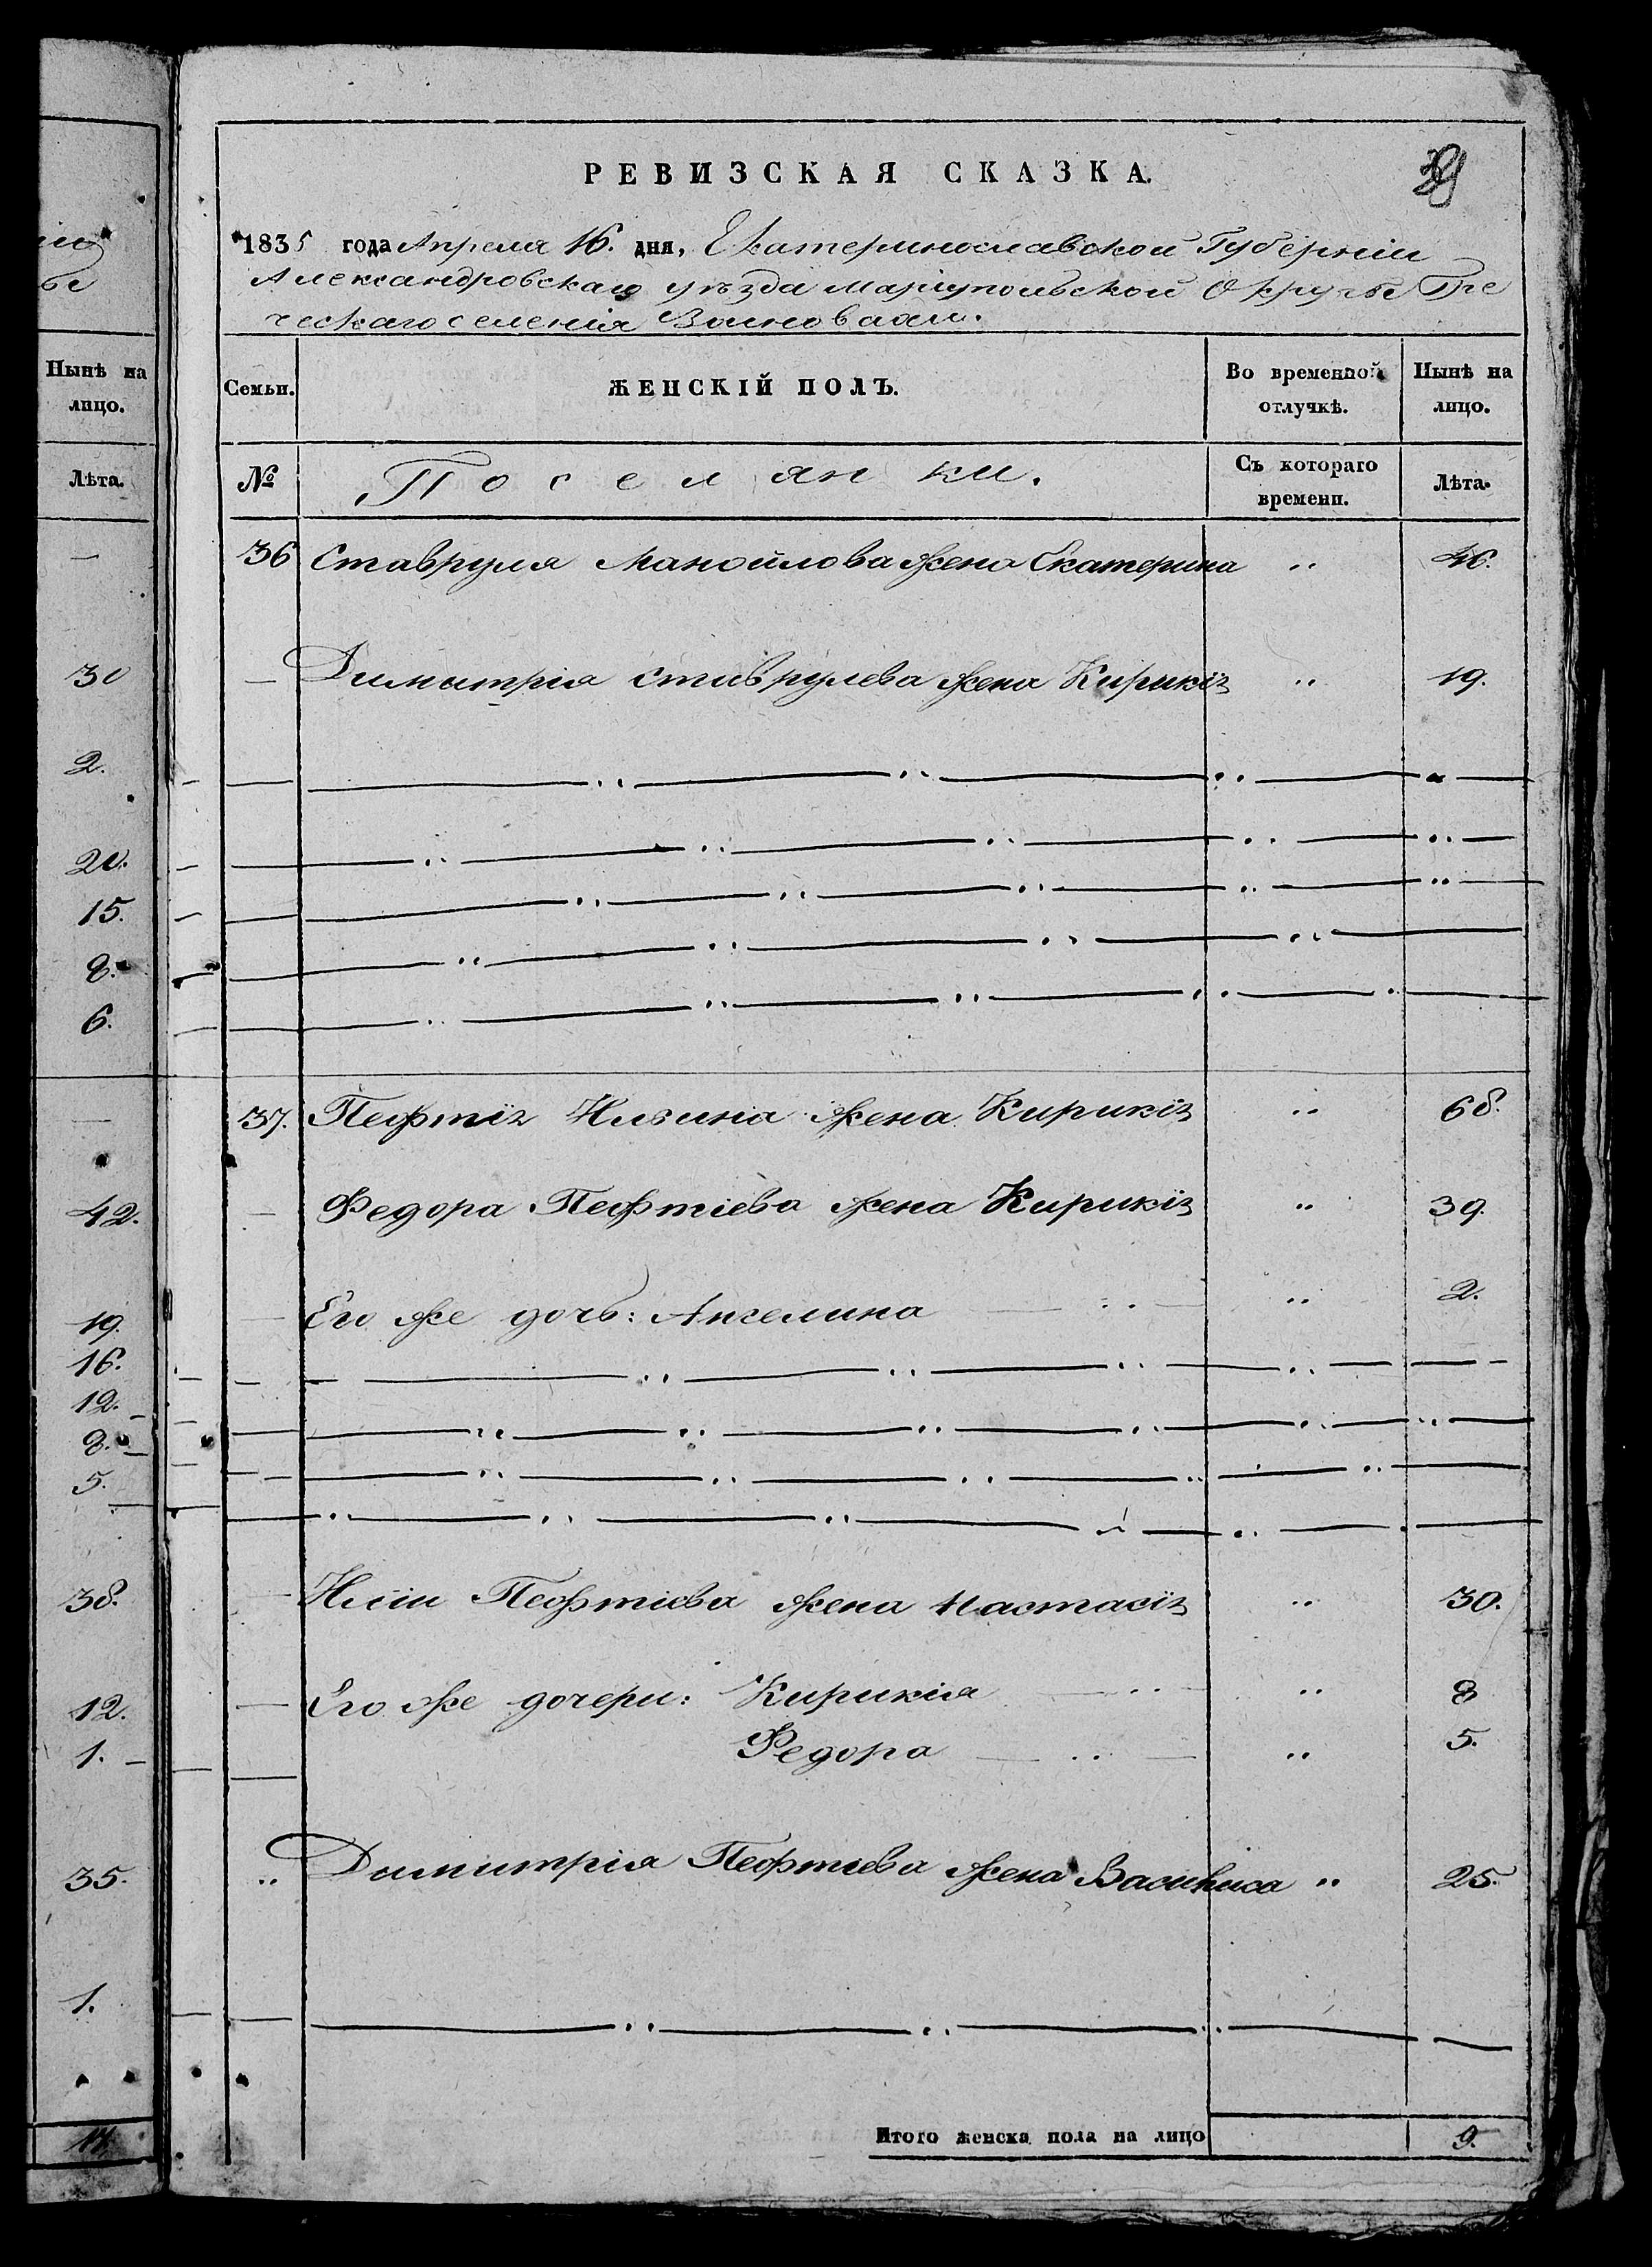 39
РЕВИЗСКАЯ СКАЗКА.
1835 года Апреля 16. дня, Екатеринославской Губерніи
Александровскаго уѣзда Маріупольской Округи Гре
ческаго селенія
Нынѣ на лицо.
Семьи.
ЖЕНСКІЙ ПОЛЪ.
Во временной отлучкѣ.
Нынѣ на лицо.
Лѣта.
№
Поселянки.
Съ котораго времени.
Лѣта.
36 Ставруля Манойлова жена Екатерина „ 46.
— Димитрія Ставрулева жена Кирикія „ 19.
37. Пефтія Ильина жена Кирикія „ 68.
— Федора Пефтіева жена Кирикія „ 39.
— Его же дочь: Ангелина „ 2.
— Иліи Пефтіева жена Настасія „ 30.
— Его же дочери: Кирикія „ 8
Федора „ 5.
„ Димитрія Пефтіева жена Василиса „ 25.
Итого женска пола на лицо 9.
30
2.
20.
15.
8.
6.
42.
19.
16.
12.
8.
5.
38.
12.
1.
35.
1.